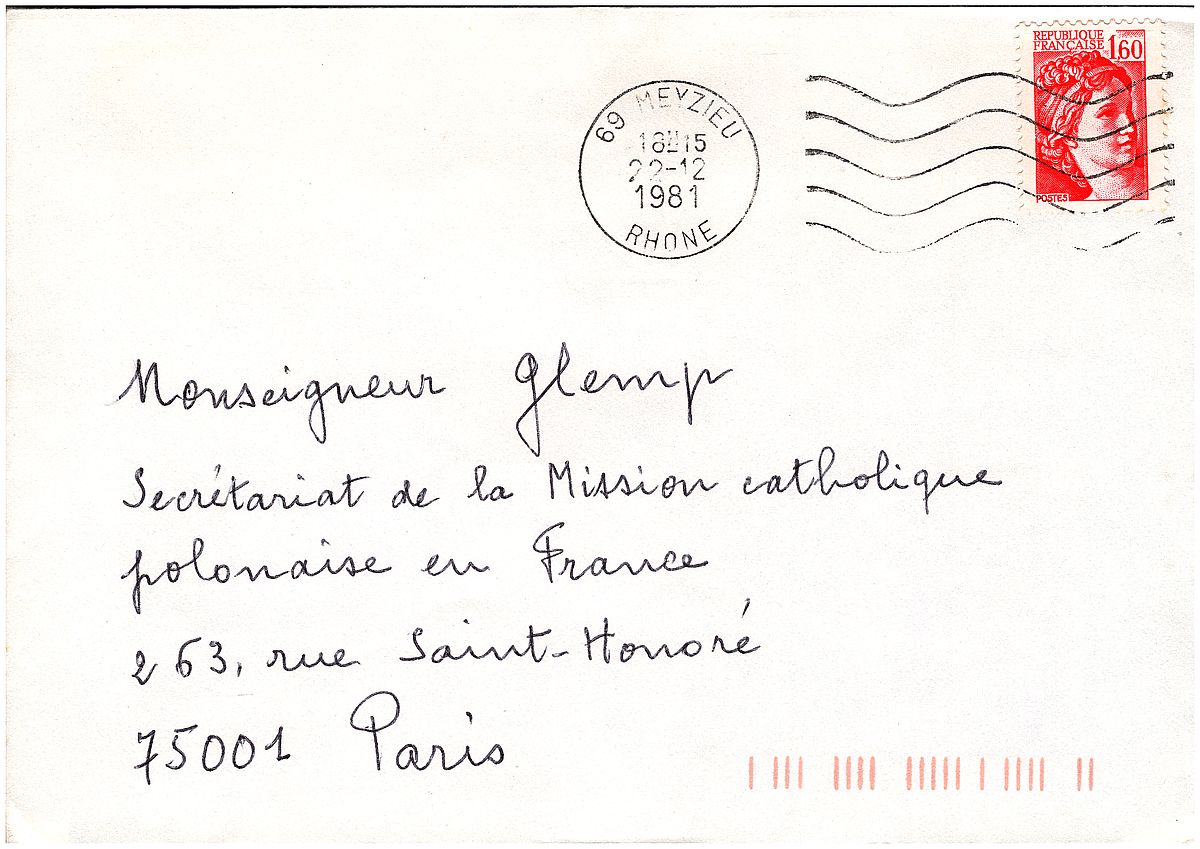 REPUBLIQUE
FRANÇAISE 1,60
POSTES
69 MEYZIEU
18H15
22-12
1981
RHONE
Monseigneur Glemp
Secrétariat de la Mission catholique
polonaise en France
263, rue Saint-Honoré
75001 Paris